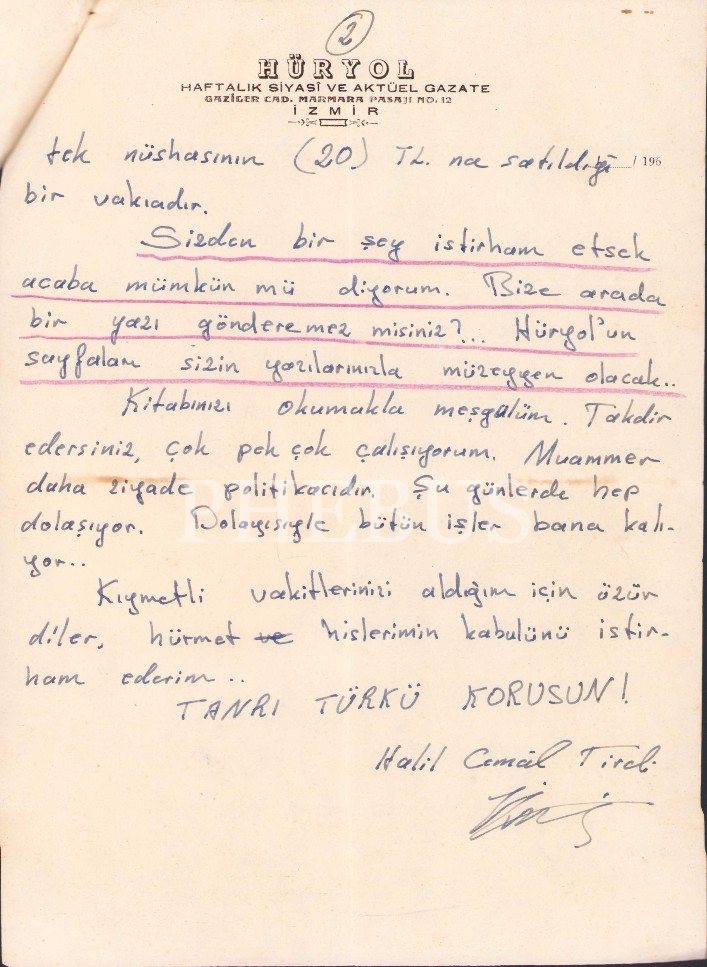 2
HÜRYOL
HAFTALIK SİYASÎ VE AKTÜEL GAZATE
GAZİLER CAD. MARMARA PASAJI NO. 12
İZMİR
tek nüshasının (20) TL. na satıldığı / 196
bir vakıadır.
Sizden bir şey istirham etsek
acaba mümkün mü diyorum. Bize arada
bir yazı gönderemez misiniz?... Hüryol'un
sayfaları sizin yazılarınızla müzeyyen olacak..
Kitabınızı okumakla meşgulüm. Takdir
edersiniz, çok pek çok çalışıyorum. Muammer
daha ziyade politikacıdır. Şu günlerde hep
dolaşıyor. Dolayısiyle bütün işler bana kalı-
yor..
Kıymetli vakitlerinizi aldığım için özür
diler, hürmet ve hislerimin kabulünü istir-
ham ederim..
TANRI TÜRKÜ KORUSUN!
Halil Cemâl Tireli
PHEBUS